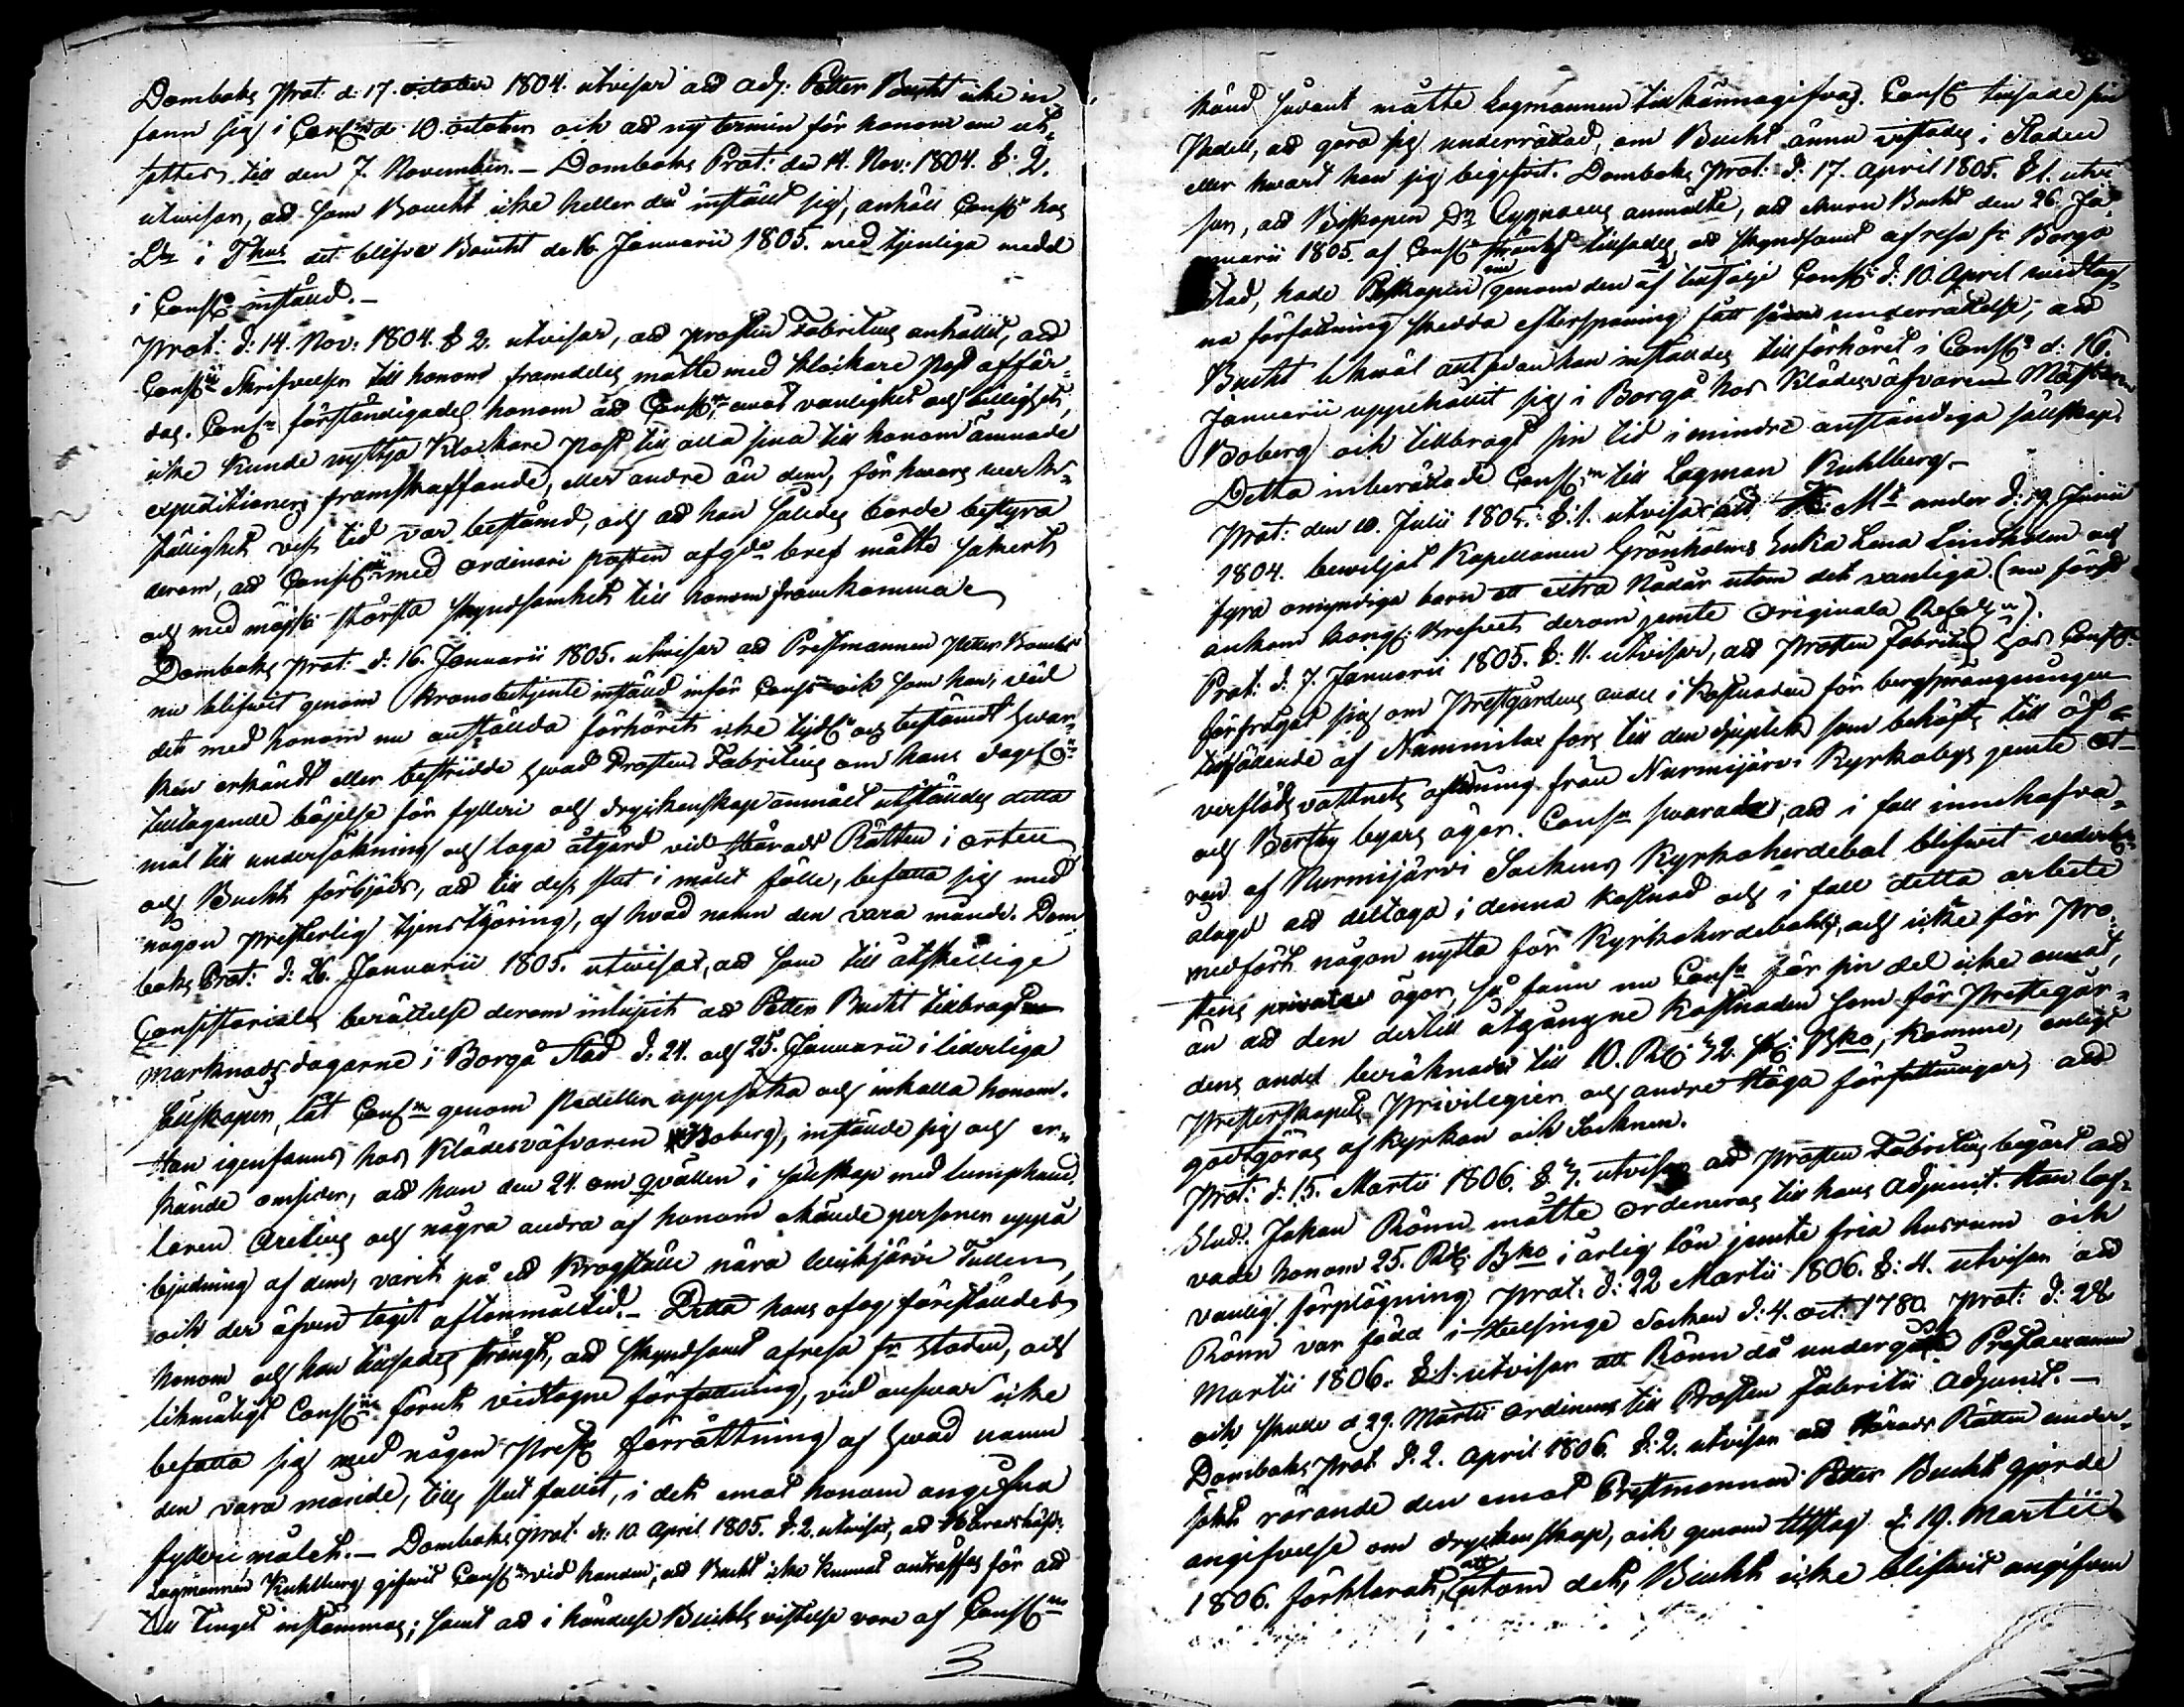 Domboks Prot. d: 17. october 1804. utvisar ad adj: Petter Bucht icke in
fann sig i Cons. d: 10. october och ad ny termin för honom om ut-
sattes till den 7. November. – Domboks Prot: den 14. Nov: 1804. §. 2.
utvisar, ad som Boucht icke heller då inställt sig, anhöll Cons. hos
i det blifva Boucht de 16. Januarii 1805. med tjenliga medel
i Cons. inställd. –
Prot: d: 14. Nov: 1804. § 2. utvisar, ad prosten Fabritius anhållit, ad
Cons. Skrifvelser till honom framdeles måtte med Klockare Post affär-
das. Cons. förständigades honom ad Cons. emot vanlighet och billighet,
icke kunde nyttja Klockare post till alla sina till honom ämnade
expeditioners framskaffande, eller andre än dem, för hwars werk-
ställighet viss tid var bestämd, och ad han således borde bestyra
derom, ad Cons. med ordinari posten afgående bref måtte säkert
och med största skyndsamhet till honom framkomma
Domboks Prot: d: 16. Januarii 1805. utvisar ad Prestmannen Petter Boucht
nu blifwit genom Kronobetjente inställd inför Cons. och som han, vid
det med honom nu anställda förhöret icke tydl. och bestämdt hwar-
ken erkändt eller bestridde hwad Prosten Fabritius om hans dagel.
tilltagande böjelse för fylleri och dryckenskap anmält utställdes detta
mål till undersökning och laga åtgärd vid Härads Rätten i orten
och Bucht förbjöds, ad till dess slut i målet fölle, befatta sig med
någon presterlig tjenstgöring, af hvad namn den vara månde. Dom-
boks Prot: d: 26. Januarii 1805. utvisar, ad som till åtskillige
Consistorialer berättelse derom inlupit ad Petter Bucht tillbragt
marknadsdagarne i Borgå stad d: 24. och 25. Januarii i liderliga
sällskaper, lät Cons. genom Pedellen uppsöka och inkalla honom.
Han igenfanns hos Klädesväfvaren Boberg, inställde sig och er-
kände omsider, ad han den 24. om qvällen i sällskap med lumphand-
laren Aretius och några andra af honom okände personer uppå
bjudning af dem, varit på ett Krogställe nära tullen,
och der äfven tagit aftonmåltid. – Detta hans ofog föreställdes
honom och han tillsades strängt, ad skyndsamt afresa fr. Staden, och
likmätigt Cons. förut vidtagne författning, vid answar icke
befatta sig med någon prest. förrättning af hwad namn
den vara månde, tills slut fallit, i det emot honom angifna
fyllerimålet. – Domboks Prot: d: 10. April 1805. §. 2. utvisar, ad Häradshöfd.
Lagmannen Kuhlberg gifwit Cons. vid handen, ad Bucht icke kunnat anträffas för ad
till Tinget instämmas; samt ad i händelse Buchts vistelse vore af Cons.
3
känd, sådant måtte Lagmannen tillkännagifvas. Cons. tillsade sin
Pedell, ad göra sig underrättad, om Bucht ännu vistades i Staden
eller hwart han sig begifvit. Domboks Prot: d: 17. April 1805. § 1. utvi-
sar, ad Biskopen Cygnaeus anmälte, ad ehuru Bucht den 26. Ja-
nuarii 1805. af Cons. tillsades ad skyndsamt afresa fr. Borgå
stad, hade Biskopen genom den af tillfölje Cons. d: 10. April vidtag-
na författning skedda efterspaning fått underrättelse, ad
Bucht likwäl alt sedan han inställdes till förhöret i Cons. d: 16.
Januarii uppehållit sig i Borgå hos Klädesväfvaren
Boberg och tillbragt sin tid i mindre anständiga sällskap.
Detta inberättade Cons. till Lagman Kuhlberg –
Prot: den 10. Julii 1805. §. 1. utvisar ad K. M:t under d: 19. Junii
1804. bewiljat Kapellanen Grönholms Enka Lena Lindholm och
fyra omyndiga barn ett extra Nådår utom det vanliga. (nu först
ankom Kongl: Brefvet derom jemte Originala ).
Prot: d: 7. Januarii 1805. §. 11. utvisar, ad Prosten Fabritius hos Cons.
förfrågat sig om Prestgårdens andel i Kostnaden för bergsprängningen
af fors till den djuplek som behöfts till öf-
verflöds vattnets aftappning från Nurmijärvi Kyrkobys jemte
och byars ägor. Cons. swarade, ad i fall innehafva-
ren af Nurmijärvi Sockens Kyrkoherdebol blifwit vederb.
ålagd ad deltaga i denna kostnad och i fall detta arbete
medfört någon nytta för Kyrkoherdebolet, och icke för Pro-
stens private ägor, så fann nu Cons. för sin del icke annat,
än ad den dertill åtgångne kostnaden som för Prestegår-
dens andel beräknades till 10. Rd. 32. sk. Bko, komme, enligt
Presterskapets Privilegier och andre Höga författningar, ad
godtgöras af Kyrkan och Socknen.
Prot: d: 15. Martii 1806. §. 7. utvisar ad Prosten Fabritius begärt ad
Stud: Johan Rönn måtte ordineras till hans Adjunct. Han lof-
vade honom 25. Rd. Bko i årlig lön jemte fria husrum och
vanlig förplägning Prot: d: 22 Martii 1806. §: 4. utvisar ad
Rönn var född i Helsinge Socken d: 4. oct: 1780. Prot: d: 28
Martii 1806. § 1. utvisar att Rönn då undergått Prestexamen
och skulle d. 29. Martii ordineras till Prosten Fabritii Adjunct. –
Domboks Prot: d. 2. April 1806. §. 2. utvisar ad Härads Rätten under-
sökt rörande den emot Prestmannen Petter Bucht gjorde
angifvelse om dryckenskap, och genom Utslag d: 19. Martii
1806. förklarat, att utom det, Bucht icke blifwit angifven